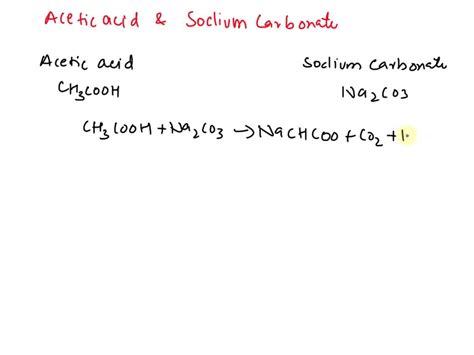 Acetic acid & Sodium Carbonate
Acetic acid Sodium Carbonate
CH3COOH Na2CO3
CH3COOH + Na2CO3 → NaCHCOO + CO2 + H